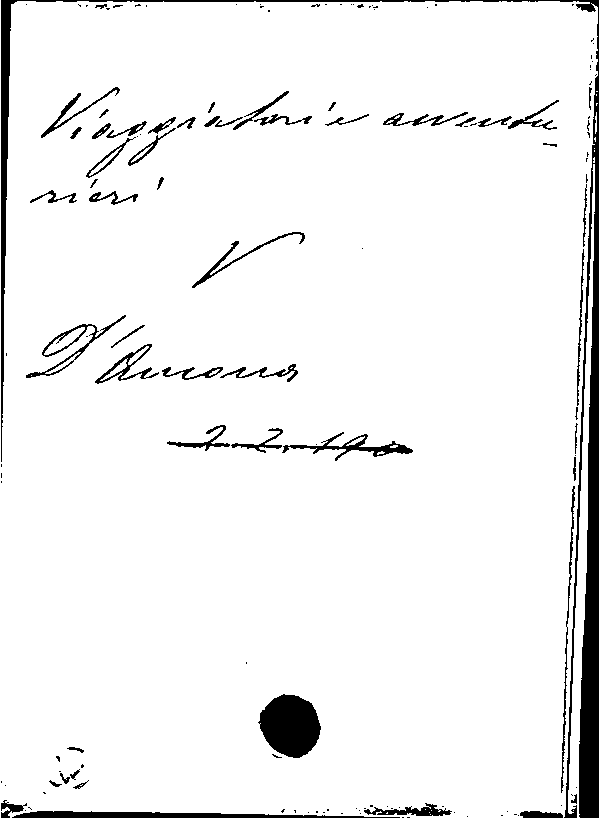 Viaggiatori e avventu-
rieri
V
D'Ancona
2.2.190